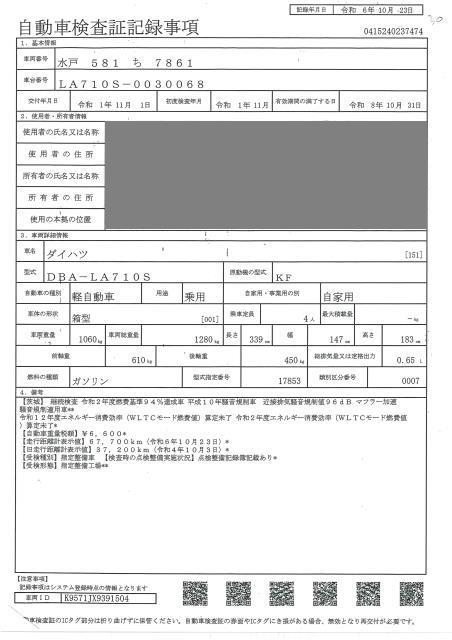 記録年月日 令和 6年10月 23日
30
自動車検査証記録事項
0415240237474
1. 基本情報
車両番号 水戸 581 ち 7861
車台番号 LA710S-0030068
交付年月日 令和 1年11月 1日 初度検査年月 令和 1年11月 有効期間の満了する日 令和 8年10月 31日
2. 使用者・所有者情報
使用者の氏名又は名称
使用者の住所
所有者の氏名又は名称
所有者の住所
使用の本拠の位置
3. 車両詳細情報
車名 ダイハツ [151]
型式 DBA-LA710S 原動機の型式 KF
自動車の種別 軽自動車 用途 乗用 自家用・事業用の別 自家用
車体の形状 箱型 [001] 乗車定員 4人 最大積載量 -kg
車両重量 1060kg 車両総重量 1280kg 長さ 339cm 幅 147cm 高さ 183cm
前軸重 610kg 後軸重 450kg 総排気量又は定格出力 0.65 L
燃料の種類 ガソリン 型式指定番号 17853 類別区分番号 0007
4. 備考
【茨城】 継続検査 令和2年度燃費基準94%達成車 平成10年騒音規制車 近接排気騒音規制値96dB マフラー加速
騒音規制適用車**
令和12年度エネルギー消費効率(WLTCモード燃費値)算定未了 令和2年度エネルギー消費効率(WLTCモード燃費値
)算定未了*
【自動車重量税額】¥6,600*
【走行距離計表示値】67,700km(令和6年10月23日)*
【旧走行距離計表示値】37,200km(令和4年10月3日)*
【受検種別】指定整備車 【検査時の点検整備実施状況】点検整備記録簿記載あり*
【受検形態】指定整備工場**
【注意事項】
記録事項はシステム登録時点の情報となります
車両ID K9571JX9391504
車検査証のICタグ部分は折り曲げずに保管ください。自動車検査証の券面やICタグにき損がある場合、無効となり再交付が必要です。